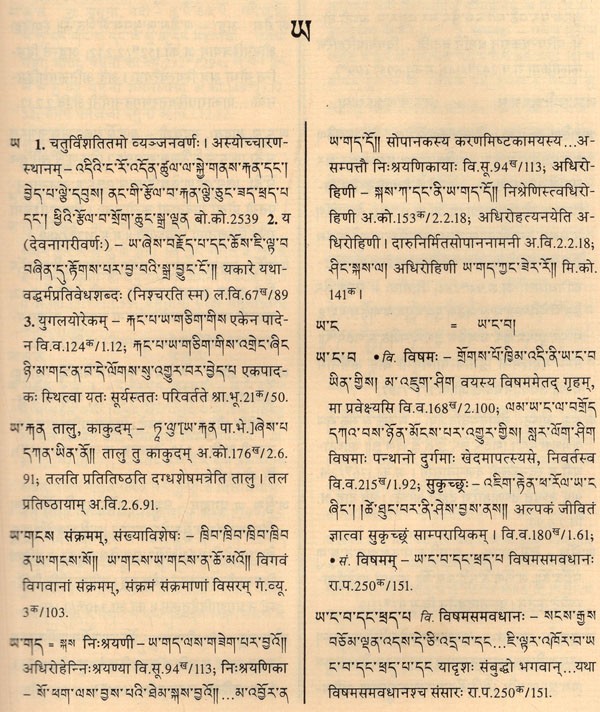 ཡ
ཡ 1. चतुर्विंशतितमो व्यञ्जनवर्णः। अस्योच्चारण-
स्थानम् – འདིའི་ང་རོ་འདོན་ཚུལ་ལ་སྐྱེ་གནས་རྐན་དང་།
བྱེད་པ་ལྕེ་དབུས། ནང་གི་རྩོལ་བ་རྐན་ལྕེ་ཅུང་ཟད་ཕྲད་པ
དང་། ཕྱིའི་རྩོལ་བ་སྲོག་ཆུང་སྒྲ་ལྡན बो.को.2539 2. य
(देवनागरीवर्णः) – ཡ་ཞེས་བརྗོད་པ་དང་ཆོས་ཇི་ལྟ་བ
བཞིན་དུ་རྟོགས་པར་བྱ་བའི་སྒྲ་བྱུང་ངོ་།། यकारे यथा-
वद्धर्मप्रतिवेधशब्दः (निश्चरति स्म) ल.वि.67ख/89
3. युगलयोरेकम् – རྐང་པ་ཡ་གཅིག་གིས एकेन पादे-
न वि.व.124क/1.12; རྐང་པ་ཡ་གཅིག་གིས་འགྲེང་ཞིང
ཉི་མ་གང་ན་བ་དེ་ལོགས་སུ་འགྱུར་བར་བྱེད་པ एकपाद-
कः स्थित्वा यतः सूर्यस्ततः परिवर्तते श्रा.भू.21क/50.
ཡ་རྐན तालु, काकुदम् – ཏཱ་ལུ་ཡ་རྐན पा.भे.]ཞེས་པ
དཀན་ཡིན་ནོ།། तालु तु काकुदम् अ.को.176ख/2.6.
91; तलति प्रतितिष्ठति दग्धशेषमत्रेति तालु। तल
प्रतिष्ठायाम् अ.वि.2.6.91.
ཡ་གངས संक्रमम्, संख्याविशेषः – ཁྲིབ་ཁྲིབ་ཁྲིབ་ཁྲིབ
ན་ཡ་གངས་སོ།། ཡ་གངས་ཡ་གངས་ན་ཆོ་མའོ།། विगवं
विगवानां संक्रमम्, संक्रमं संक्रमाणां विसरम् ग.व्यू.
3क/103.
ཡ་གད = སྐས निःश्रयणी – ཡ་གད་ལས་གཟེག་པར་བྱའོ།།
अधिरोहेन्निःश्रयण्या वि.सू.94ख/113; निःश्रयणिका
– སོ་ཕག་ལས་བྱས་པའི་ཐེམ་སྐས་བྱའོ།།...མ་འབྱོར་ན
ཡ་གད་དོ།། सोपानकस्य करणमिष्टकामयस्य...अ-
सम्पत्तौ निःश्रयणिकायाः वि.सू.94ख/113; अधिरो-
हिणी – སྐས་ཀ་དང་ནི་ཡ་གད་དོ།། निश्रेणिस्त्वधिरो-
हिणी अ.को.153क/2.2.18; अधिरोहत्यनयेति अ-
धिरोहिणी। दारुनिर्मितसोपाननामनी अ.वि.2.2.18;
ཤིང་སྐས་ལ། अधिरोहिणी ཡ་གད་ཀྱང་ཟེར་རོ།། मि.को.
141क।
ཡ་ང = ཡ་ང་བ།
ཡ་ང་བ •वि. विषमः – གྲོགས་པོ་ཁྱིམ་འདི་ནི་ཡ་ང་བ
ཡིན་གྱིས། མ་འཇུག་ཤིག वयस्य विषममेतद् गृहम्,
मा प्रवेक्ष्यसि वि.व.168ख/2.100; ལམ་ཡ་ང་ལ་བགྲོད
དཀའ་བས་ཉོན་མོངས་པར་འགྱུར་གྱིས། སླར་ལོག་ཤིག
विषमाः पन्थानो दुर्गमाः खेदमापत्स्यसे, निवर्तस्व
वि.व.215ख/1.92; सुकृच्छ्रः – འཇིག་རྟེན་ཕ་རོལ་ཡ་ང
ཞིང་། །ཚེ་ཐུང་བར་ནི་ཤེས་བྱས་ནས།། अल्पकं जीवितं
ज्ञात्वा सुकृच्छ्रं साम्परायिकम्। वि.व.180ख/1.61;
•सं. विषमम् – ཡ་ང་བ་དང་ཕྲད་པ विषमसमवधानः
रा.प.250क/151.
ཡ་ང་བ་དང་ཕྲད་པ वि. विषमसमवधानः – སངས་རྒྱས
བཅོམ་ལྡན་འདས་དེ་ཅི་འདྲ་བ་དང...ཇི་ལྟར་འཁོར་བ་ཡ
ང་བ་དང་ཕྲད་པ यादृशः संबुद्धो भगवान्...यथा
विषमसमवधानश्च संसारः रा.प.250क/151.